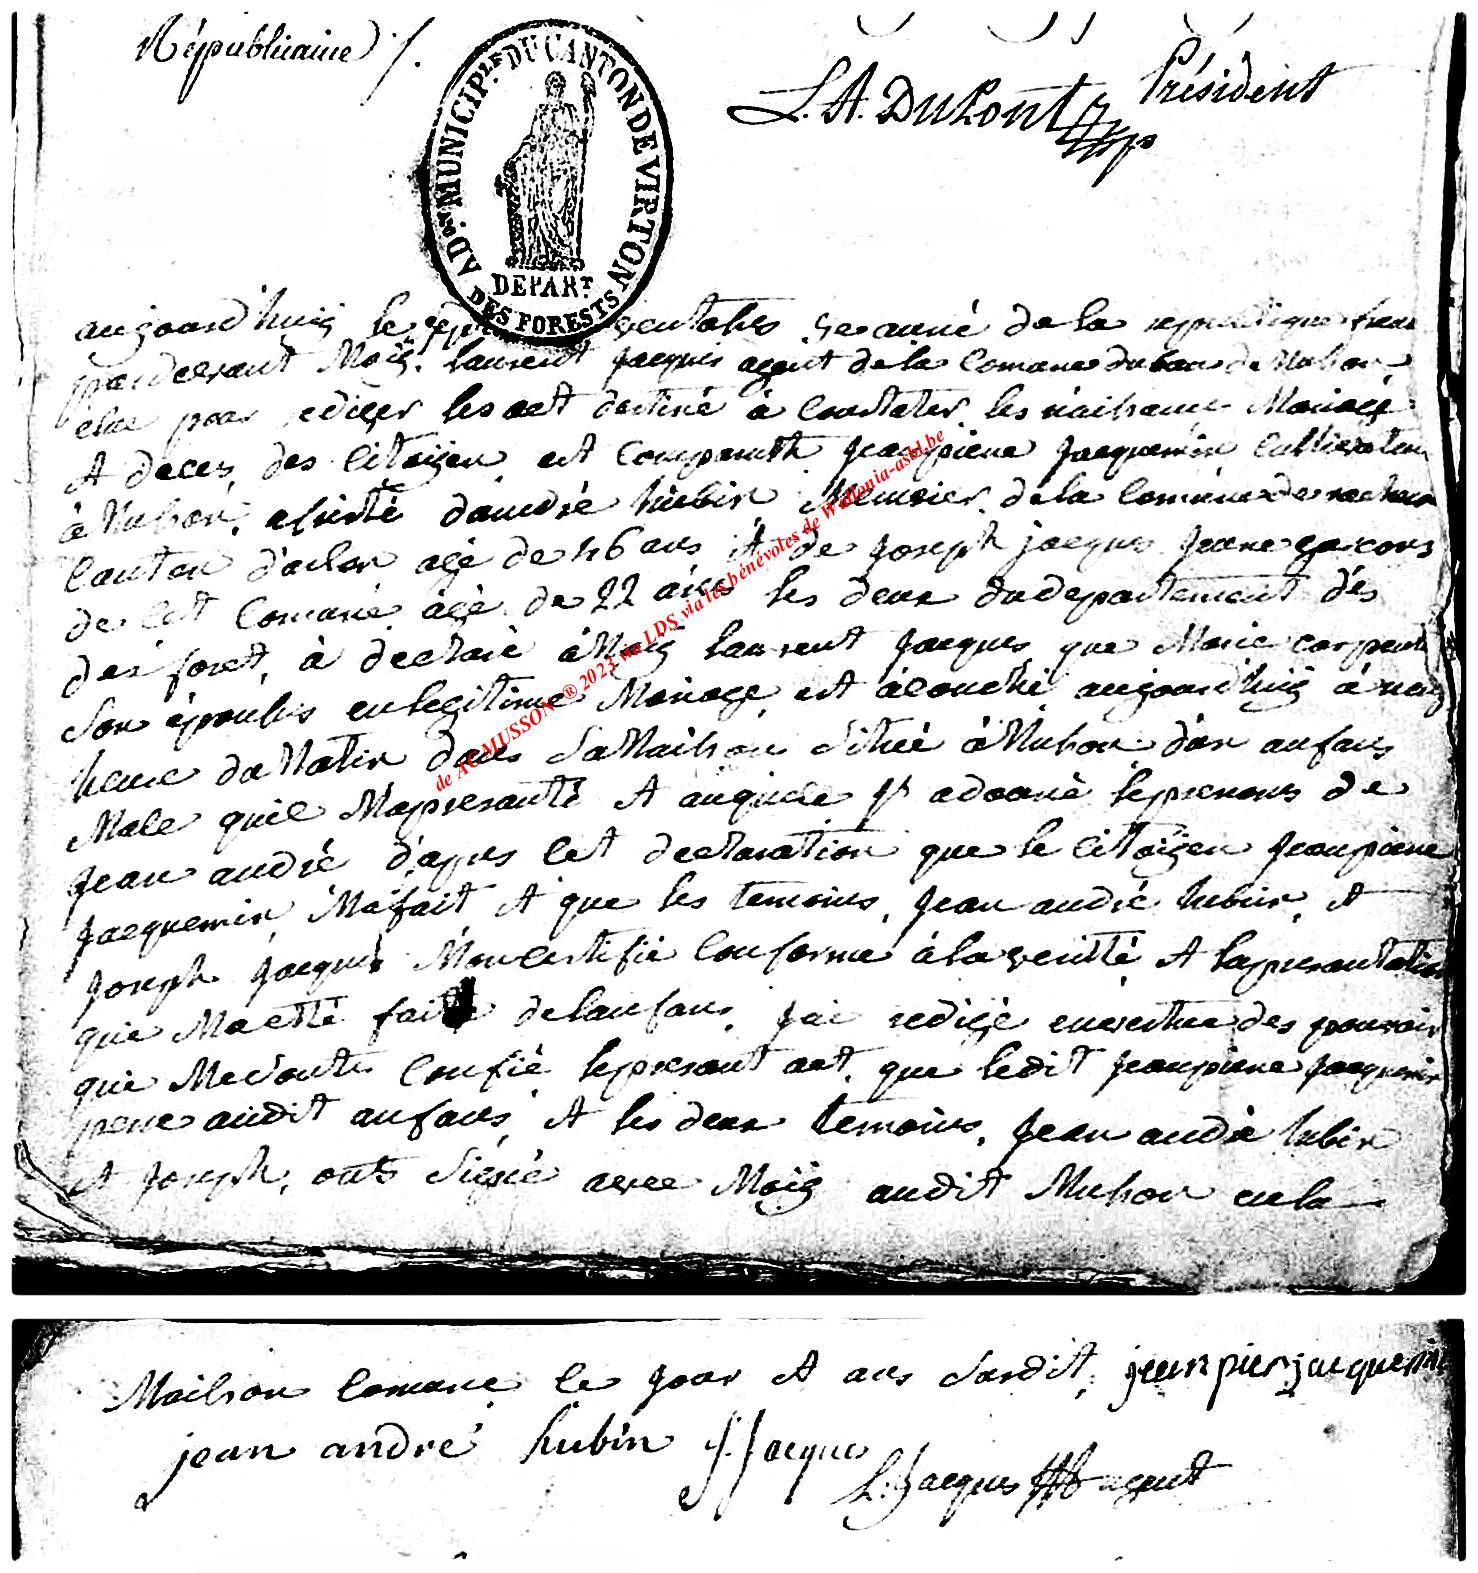 Républicaine /.
L. A. DuPont Président
ADon. MUNICIPLE. DU CANTON DE VIRTON
DEPART.
DES FORESTS
aujourd'huij le ventose année de la republique
pardevant Moij laurent jacques agent de la Comune duban de Mubon
élue pour redigér les act destiné à Constater les naisance Mariage
et deces des Citoijen est Comparuth jeanpiere jacquemin Cultivateur
à Mubon, assisté d'andré hubin de la Comune de
Canton d'arlon agé de 46 ans et de joseph jacques jeune garcons
de cet Comune agé de 22 ans les deux du departement dés
dés foret, à declaré à Moij laurent jacques que Marie
Son épouse en legitime Mariage est acouché aujourd'huij à
heure du Matin dans sa Maison situé à Mubon d'un anfans
Male quil Mapresanté et auquele jl adonné le prenons de
jean andré d'apres cet declaration que le Citoijen jeanpiere
jacquemin M'a fait et que les temoins, jean andré hubin, et
joseph jacques Mon certifié Conforme à la verité et la presantation
que Ma etté faite de lanfans, jai redigé en vertue des pouvoir
que Me sonts Confié le presant act, que ledit jeanpiere jacquemin
pere audit anfans et les deux temoins, jean andré hubin
et joseph, onts signé avec Moij audit Mubon en la
Maison Comune le jour et ans susdit, jean pier jacquemin
jean andré hubin j. jacques
L. jacques agent
de ACMUSSON ® 2023 via LDS via les bénévoles de Wallonia-asbl.be